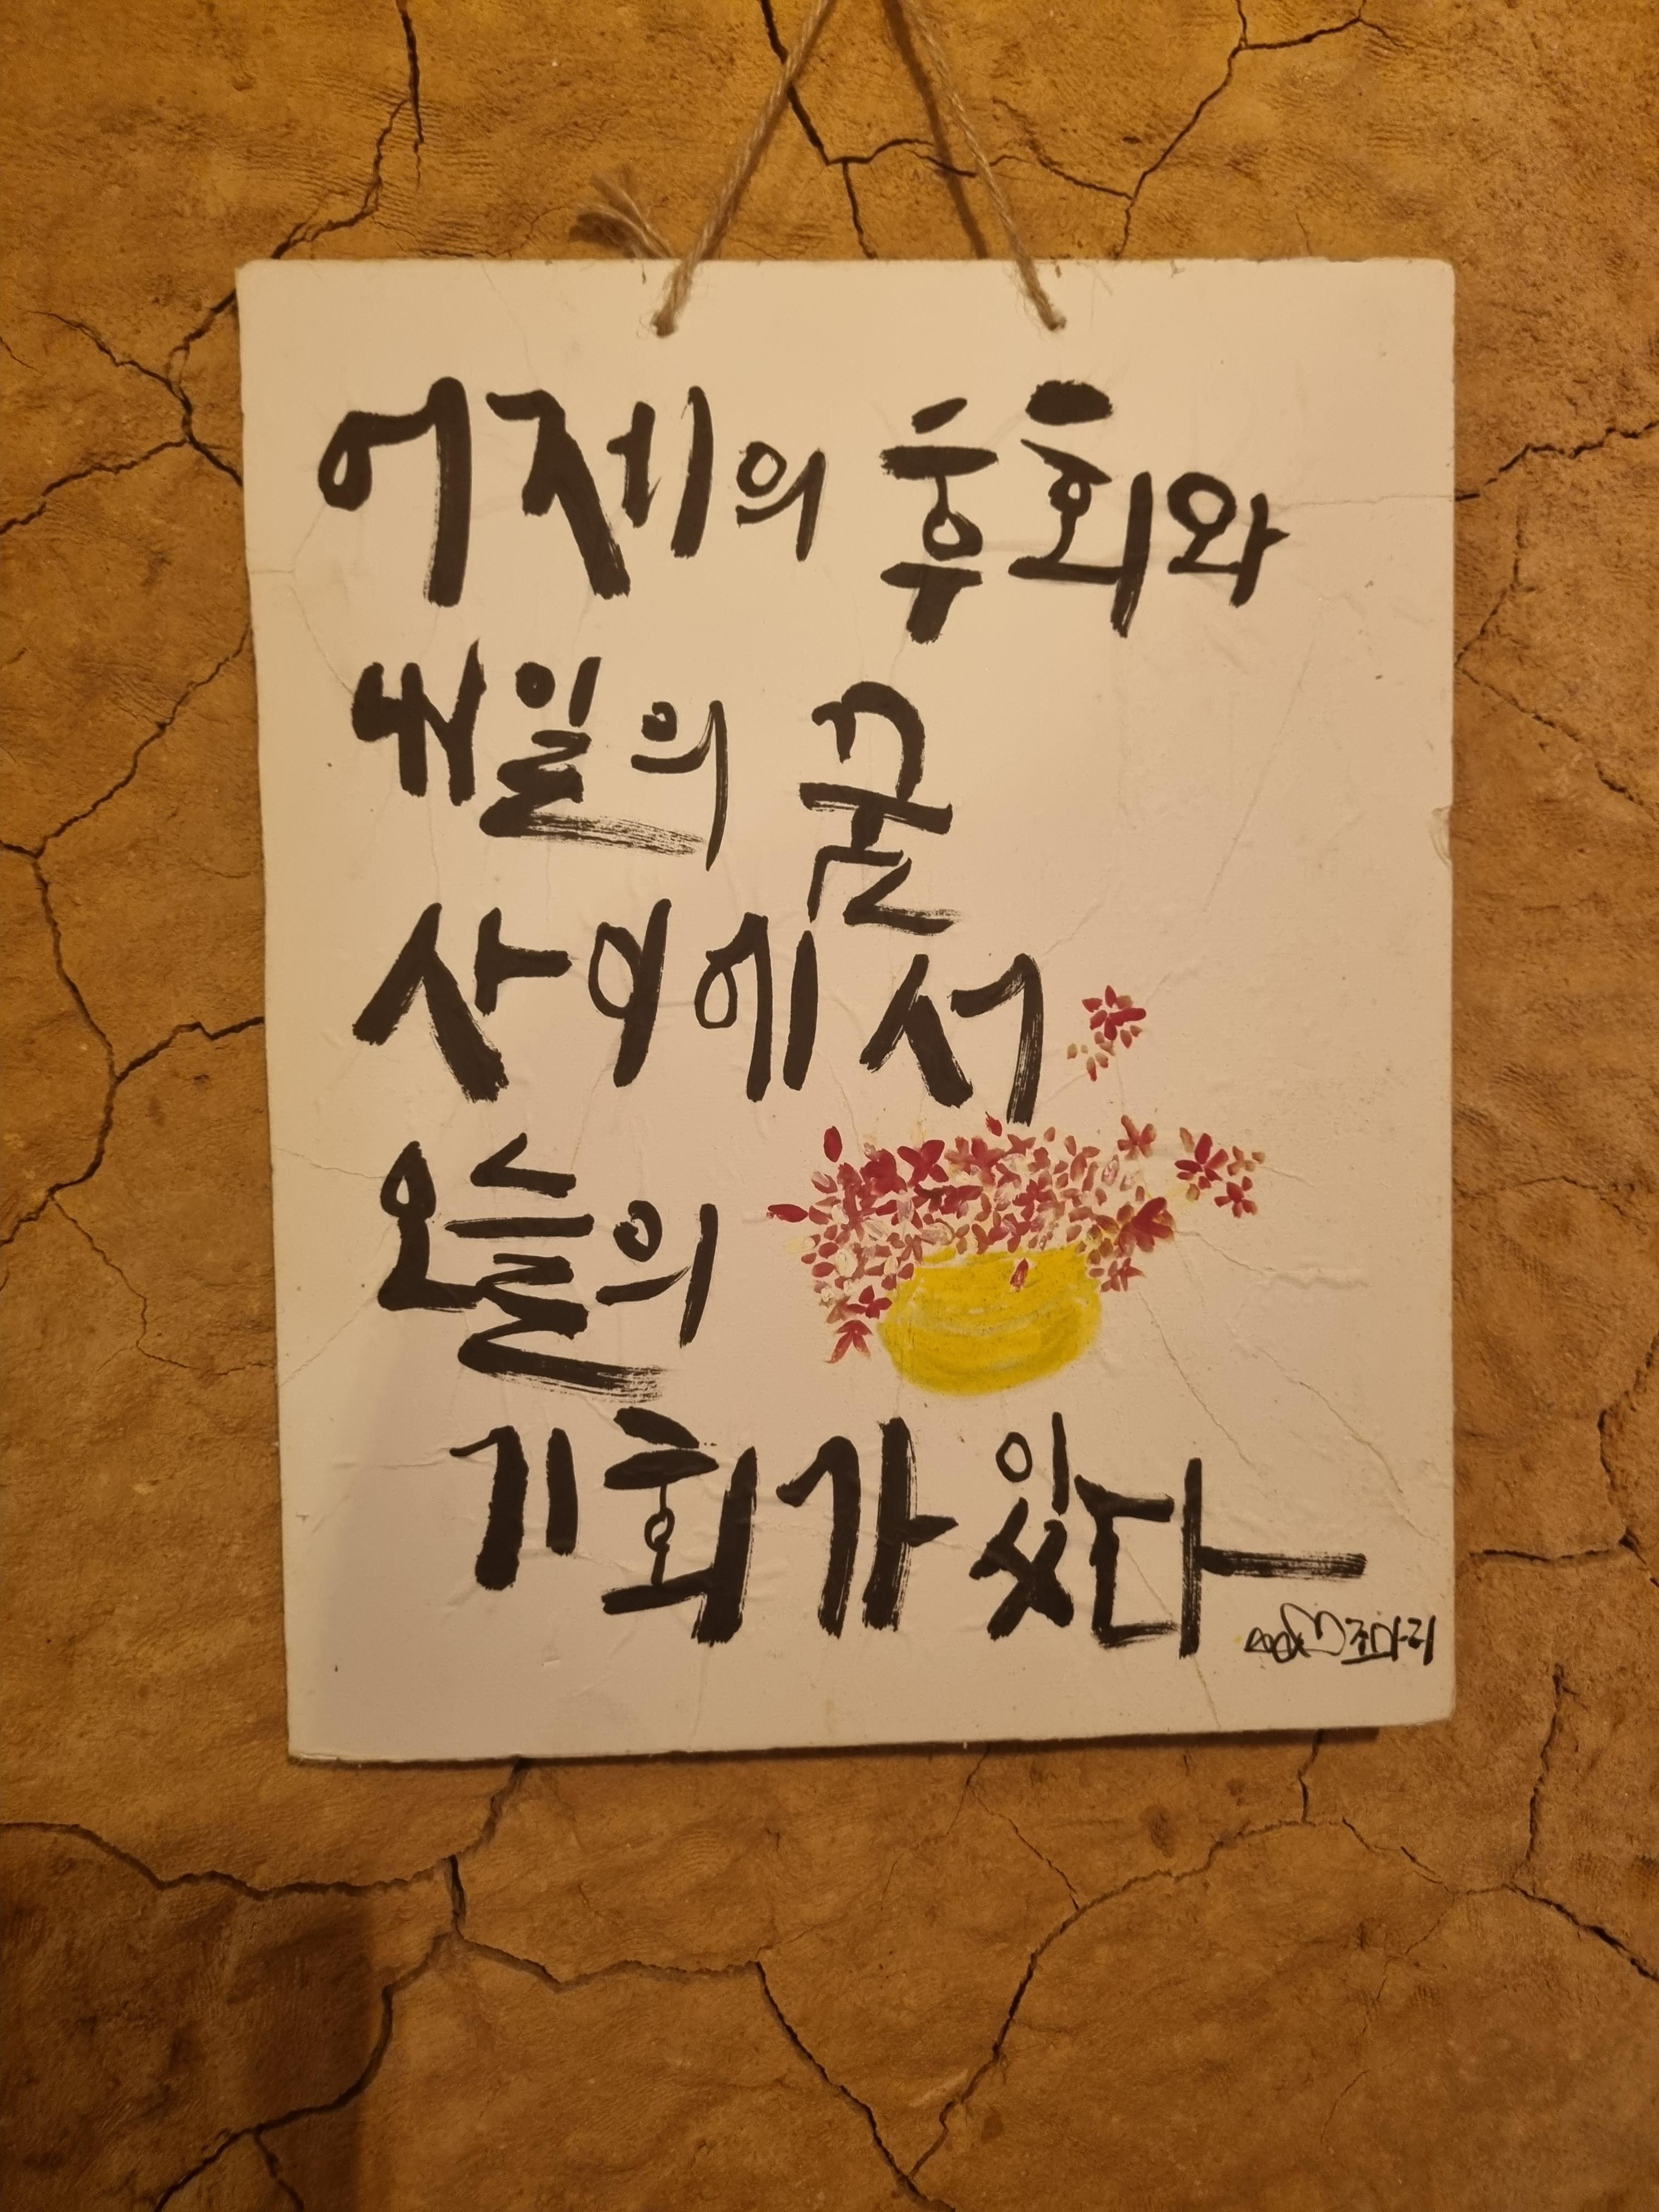 어제의 후회와
내일의 꿈
사이에서
오늘의
기회가 있다
조마리